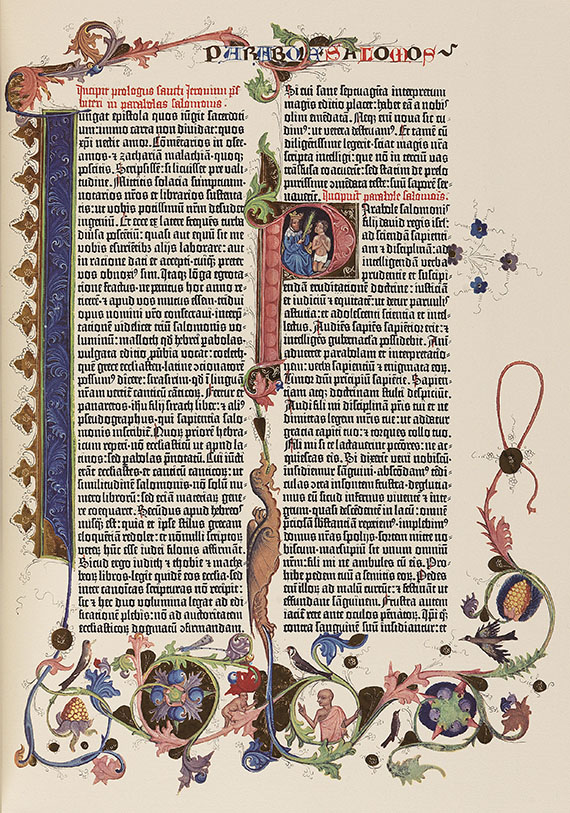 PARABOLE SALOMOIS
Incipit prologus sancti Jeronimi p̄s
biteri in parabolas salomonis.
Iungat epistola quos iūgit sacerdoti-
um: immo carta non diuidat: quos
xp̄i nectit amor. Cōmētarios in osee.
amos. ⁊ zachariam malachiā. quoqꝫ
poscitis. Scripsissē: si licuisset pre vali-
tudine. Mittitis solacia sumptuum.
notarios nr̄os et librarios sustenta-
tis: ut vobis potissimū nr̄m desudet
ingeniū. Et ecce ex latere frequēs turba
diuersa poscētiū: quasi aut equū sit me
vobis esuriētibꝫ alijs laborare: aut
in ratione dati et accepti. cuiqꝫ preter
vos obnoxiꝰ sim. Itaqꝫ lōga egrota-
tione fractus. ne penitus hoc anno re-
ticerē. ⁊ apud vos mutus essem. tridui
opus nomini vr̄o consecraui. interp̄-
tationem videlicet triū salomonis vo-
luminū: masloth qd̄ hebrei parabolas.
vulgata editio ꝓuerbia vocat: coeleth.
quē grece ecclesiasten. latine cōcionatorē
possumꝰ dicere: sirasirim. qd̄ ī linguā
nr̄am vertit̄ canticū cāticoꝝ. Fertur et
panaretos. ihū filij sirach liber: ⁊ aliꝰ
pseudographus. qui sapientia salo-
monis inscribit̄. Quoꝝ priorē hebra-
icum reperi. nō ecclesiasticū ut apud la-
tinos: sed parabolas p̄notatū. Cui iūcti
erāt ecclesiastes. et canticū canticoꝝ: ut
similitudinē salomonis. nō solū nu-
mero librorū: sed etiā materiaꝝ gene-
re coequaret. Secūdus apud hebreos
nusqꝫ est: quia et ipse stilus grecam
eloquētiā redolet: et nōnulli scriptoꝝ
veteꝝ hūc esse iudei filonis affirmāt.
Sicud ergo iudith ⁊ thobie ⁊ macha-
beoꝝ libros. legit quidē eos ecclesia. sed
inter canoīcas scripturas nō recipit:
sic ⁊ hec duo volumina legat ad edi-
ficationē plebis: nō ad auctoritatem
ecclesiasticoꝝ dogmatū ꝯfirmandam.
Si cui sane septuaginta interpretum
magis editio placet: habet eā a nobis
olim emēdatā. Neqꝫ enī noua sic cu-
dimꝰ: ut vetera destruamꝰ. Et tamē cū
diligētissime legerit. sciat magis nr̄a
scripta intelligi: que nō in terciū vas
trāsfusa coacuerīt: sed statim de prelo
purissime ꝯmēdata teste: suū saporē ser-
uauerīt. Incipiunt parabole salomonis.
Parabole salomonis
filij dauid regis isrl̄:
ad sciendā sapienti-
am ⁊ disciplinā: ad
intelligendā verba
prudentie et suscipi-
endā eruditationē doctrine: iusticiam
et iudiciū ⁊ equitatē: ut detur paruulis
astutia: et adolescenti scientia et intel-
lectus. Audiēs sapiēs sapiētior erit: ⁊
intelligēs gubernacla possidebit. Ani-
aduertet parabolam et interpretatio-
nem: verba sapientiū ⁊ enigmata eoꝝ.
Timor dn̄i principiū sapiētie. Sapien-
tiam atqꝫ doctrinam stulti despiciūt.
Audi fili mi disciplinā pr̄is tui et ne
dimittas legem mr̄is tue: ut addatur
gratia capiti tuo: ⁊ torques collo tuo.
Fili mi si te lactauerint pctōres: ne ac-
quiescas eis. Si dixerint veni nobiscū.
insidiemur sāguini. abscōdamꝰ tēdi-
culas ꝯtra insontem frustra. deglutia-
mus eū sicud infernus viuentē ⁊ inte-
grum. quasi descēdentē in lacū: omnē
p̄ciosā substanciā reperiemꝰ. implebimꝰ
domus nr̄as spolijs. sortem mitte no-
biscum. marsupiū sit vnum omniū
nr̄m: fili mi ne ambules cū eis. Pro-
hibe pedem tuū a semitis eoꝝ. Pedes
enī illoꝝ ad malū currūt: ⁊ festināt ut
effundant sāguinem. Frustra autem
iacit̄ rete ante oculos pēnatoꝝ. Ip̄i qꝫ
contra sanguinē suū insidiantur: et